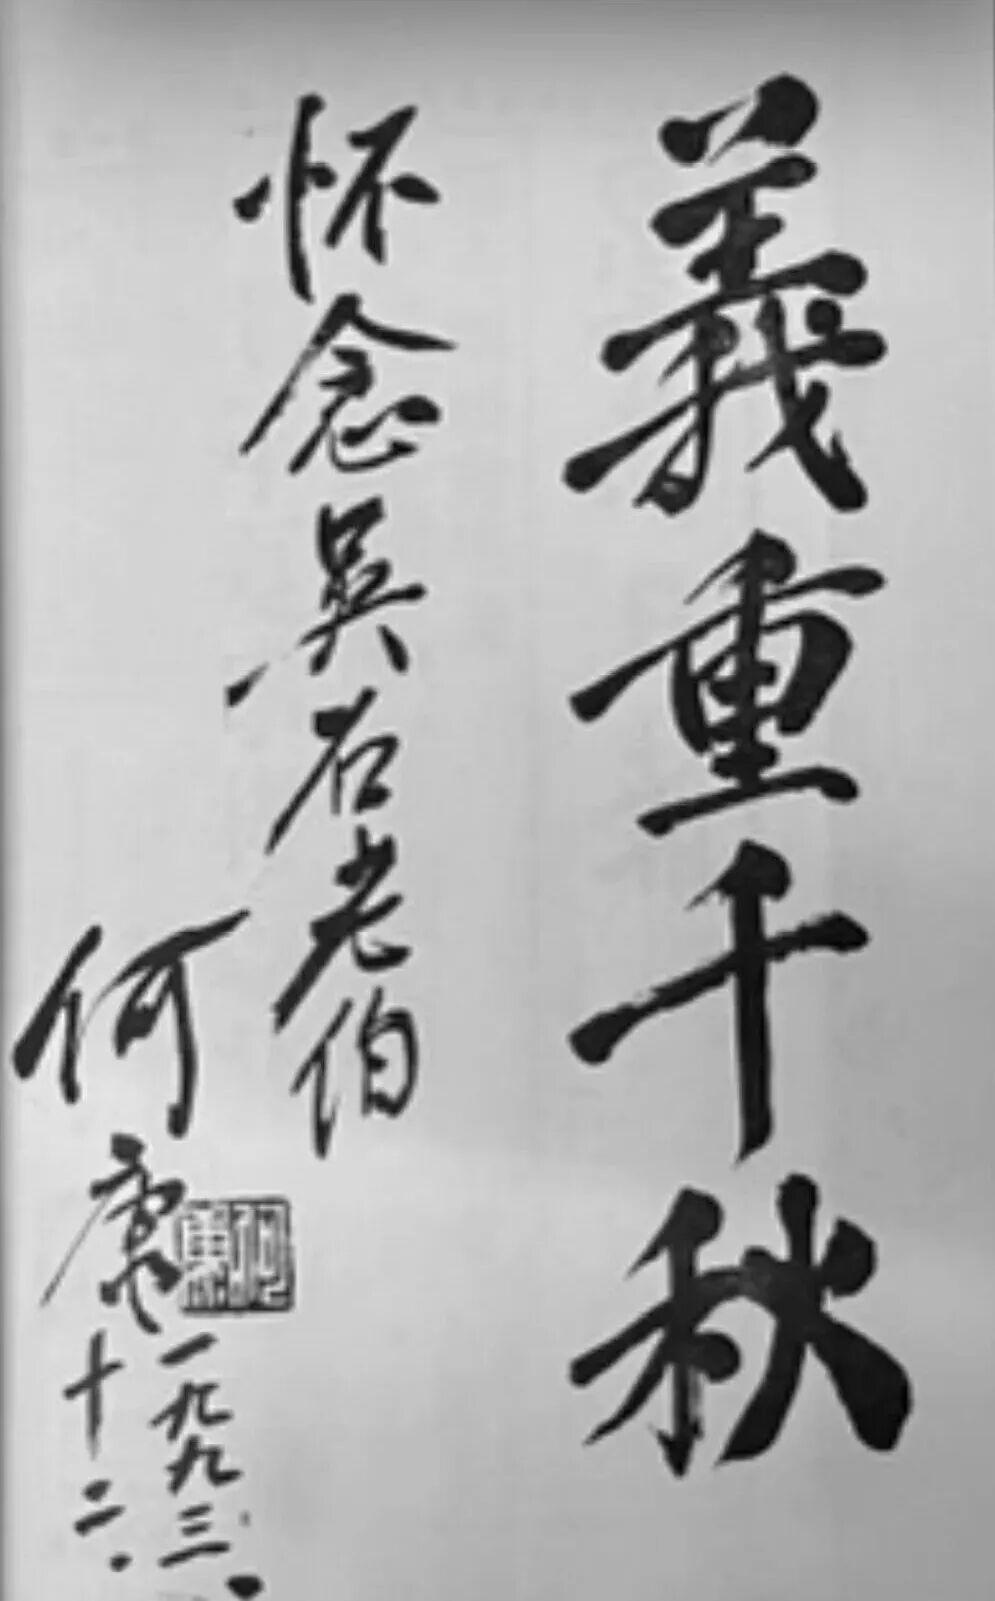 義重千秋
怀念吴石老伯
何康
一九九三、
十二.
何康